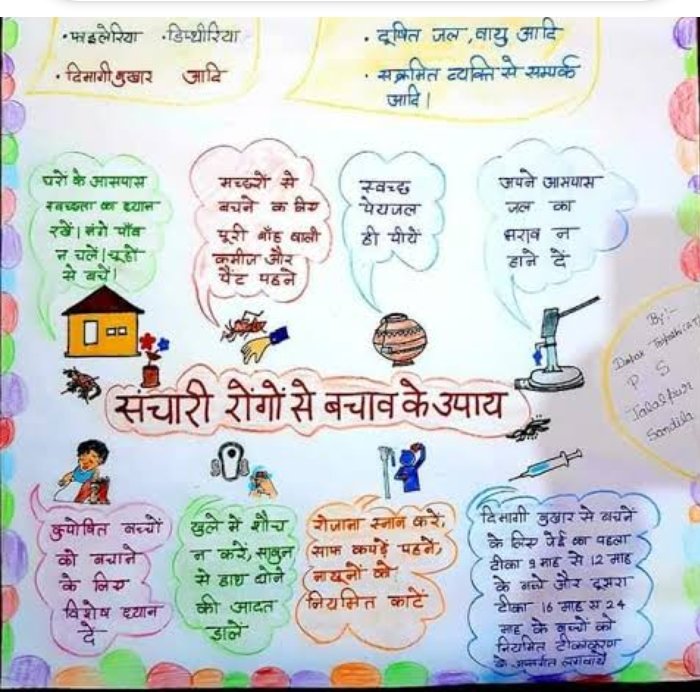 • फाइलेरिया • डिप्थीरिया
• दिमागी बुखार आदि
• दूषित जल, वायु आदि
• सक्रमित व्यक्ति से सम्पर्क
आदि।
घरों के आसपास
स्वच्छता का ध्यान
रखें। नंगे पाँव
न चलें। चूहों
से बचें।
मच्छरों से
बचने के लिए
पूरी बाँह वाली
कमीज और
पैंट पहने
स्वच्छ
पेयजल
ही पीयें
अपने आसपास
जल का
भराव न
होने दें
By:-
P S
Sandila
संचारी रोगों से बचाव के उपाय
कुपोषित बच्चों
को बचाने
के लिए
विशेष ध्यान
दे
खुले में शौच
न करें, साबुन
से हाथ धोने
की आदत
डालें
रोजाना स्नान करें,
साफ कपड़े पहनें,
नाखूनों को
नियमित काटें
दिमागी बुखार से बचने
के लिए जेई का पहला
टीका 9 माह से 12 माह
के बच्चे और दूसरा
टीका 16 माह से 24
माह के बच्चों को
नियमित टीकाकरण
के अन्तर्गत लगवायें